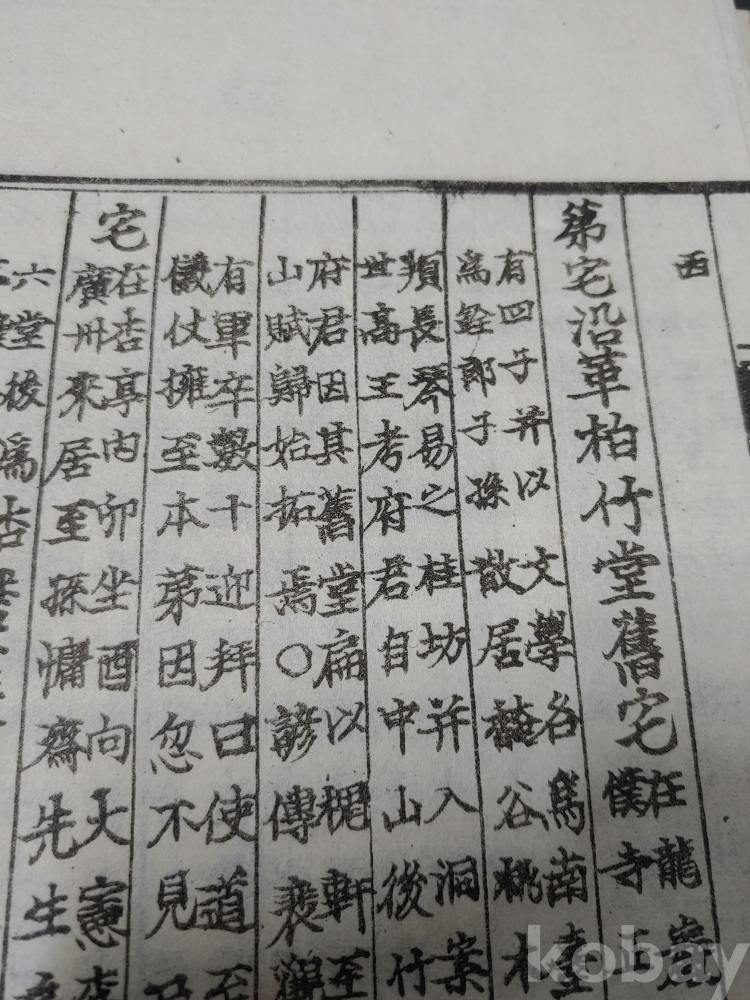 西
第宅沿革柏竹堂舊宅
在龍巖
僕寺上
有四子并以文學名爲南臺
爲銓郎子孫散居槐谷桃木
須長琴易之桂坊并入洞案
世高王考府君自中山後竹
府君因其舊堂扁以槐軒至
山賦歸始拓焉○諺傳裵
有軍卒數十迎拜曰使道至
儀仗擁至本第因忽不見
宅
在杏亭内卯坐酉向大憲李
廣州來居至孫慵齋先生
六堂後爲杏
kobay